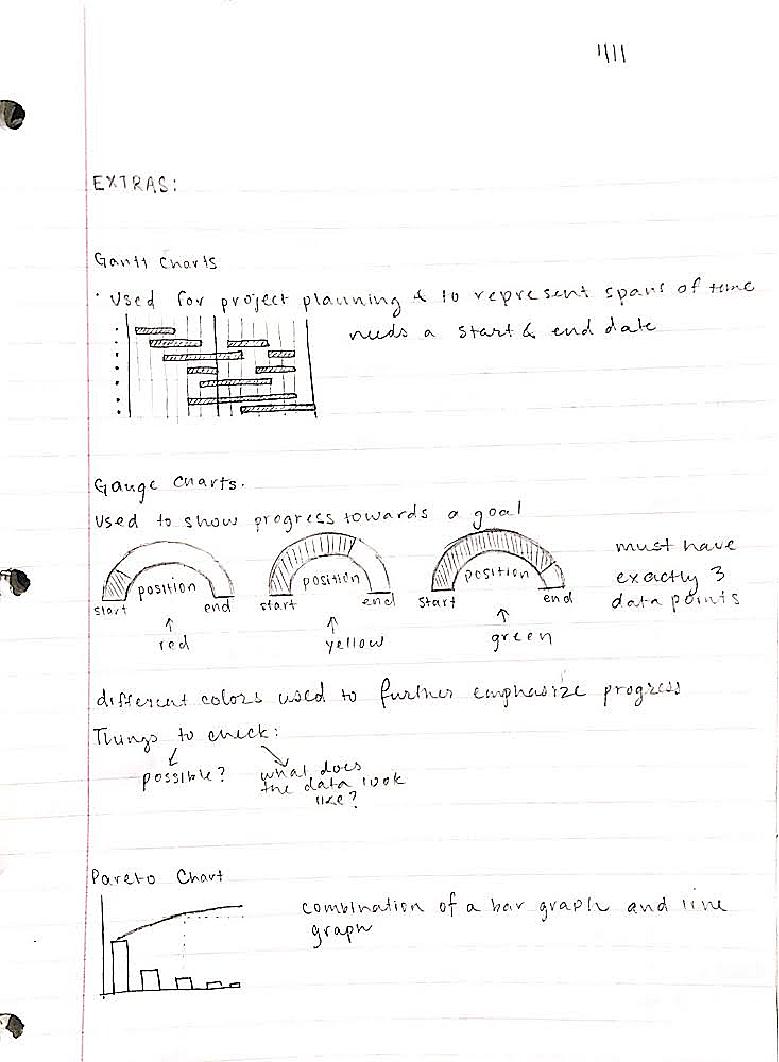 4/11
EXTRAS:
Gantt Charts
· Used for project planning & to represent spans of time
needs a start & end date
Gauge Charts.
Used to show progress towards a goal
position position position
start end start end start end
must have
exactly 3
data points
red yellow green
different colors used to further emphasize progress
Things to check:
possible? what does
the data look
like?
Pareto Chart
combination of a bar graph and line
graph